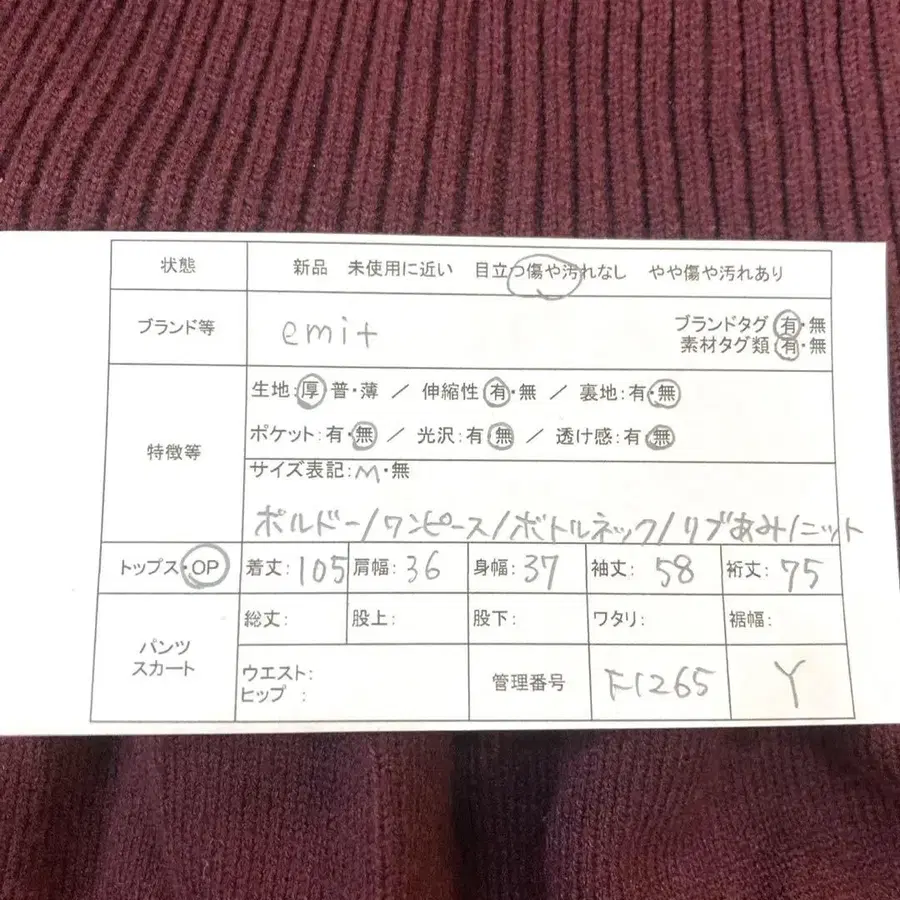 状態 新品 未使用に近い 目立つ傷や汚れなし やや傷や汚れあり
ブランド等 emit ブランドタグ 有・無
素材タグ類:有・無
特徴等
生地:厚・普・薄 / 伸縮性 有・無 / 裏地:有・無
ポケット:有・無 / 光沢:有・無 / 透け感:有・無
サイズ表記:M・無
ボルドー/ワンピース/ボトルネック/リブあみ/ニット
トップス・OP 着丈:105 肩幅:36 身幅:37 袖丈:58 裄丈:75
パンツ
スカート
総丈: 股上: 股下: ワタリ: 裾幅:
ウエスト:
ヒップ :
管理番号 F1265 Y